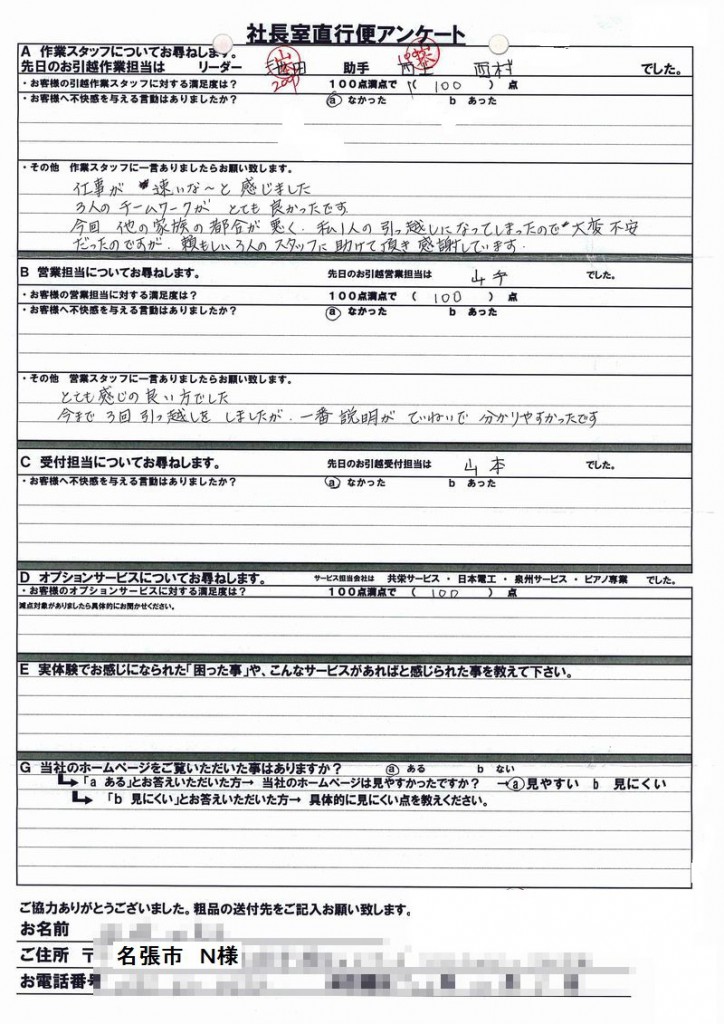 社長室直行便アンケート
A 作業スタッフについてお尋ねします。
先日のお引越作業担当は リーダー 田 助手 西村 でした。
・お客様の引越作業スタッフに対する満足度は? 100点満点で ( 100 ) 点
・お客様へ不快感を与える言動はありましたか? a なかった b あった
・その他 作業スタッフに一言ありましたらお願い致します。
仕事が 速いな~と 感じました
3人の チームワークが とても 良かったです
今回 他の 家族の 都合が 悪く、私1人の 引っ越しに なってしまったので 大変 不安
だったのですが、頼もしい 3人の スタッフに 助けて 頂き 感謝しています.
B 営業担当についてお尋ねします。 先日のお引越営業担当は 山 でした。
・お客様の営業担当に対する満足度は? 100点満点で ( 100 ) 点
・お客様へ不快感を与える言動はありましたか? a なかった b あった
・その他 営業スタッフに一言ありましたらお願い致します。
とても 感じの 良い 方でした
今まで 3回 引っ越しを しましたが、一番 説明が ていねいで 分かりやすかったです
C 受付担当についてお尋ねします。 先日のお引越受付担当は 山本 でした。
・お客様へ不快感を与える言動はありましたか? a なかった b あった
D オプションサービスについてお尋ねします。 サービス担当会社は 共栄サービス ・ 日本電工 ・ 泉州サービス ・ ピアノ専業 でした。
・お客様のオプションサービスに対する満足度は? 100点満点で ( 100 ) 点
減点対象がありましたら具体的にお聞かせください。
E 実体験でお感じになられた「困った事」や、こんなサービスがあればと感じられた事を教えて下さい。
G 当社のホームページをご覧いただいた事はありますか? a ある b ない
「a ある」とお答えいただいた方→ 当社のホームページは見やすかったですか? →a 見やすい b 見にくい
「b 見にくい」とお答えいただいた方→ 具体的に見にくい点を教えください。
ご協力ありがとうございました。粗品の送付先をご記入お願い致します。
お名前
ご住所 〒 名張市 N様
お電話番号